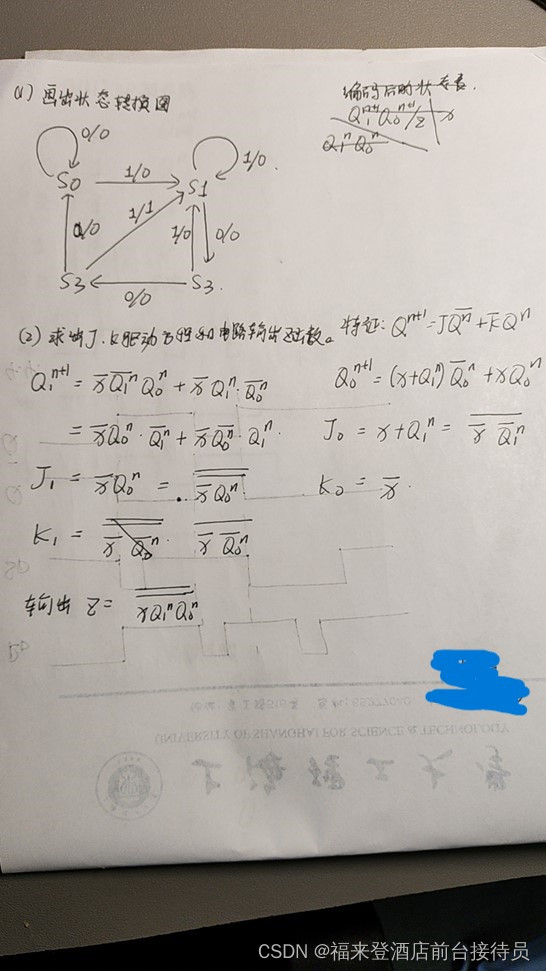 (1) 画出状态转换图
编码后的状态表.
Q₁ⁿ⁺¹Q₀ⁿ⁺¹/Z x
Q₁ⁿQ₀ⁿ
0/0 1/0
S0 1/0 S1
0/0 1/1 1/0 0/0
S3 0/0 S3.
(2) 求出J、K驱动方程和电路输出函数。 特征: Qⁿ⁺¹=JQ̅ⁿ+K̅Qⁿ
Q₁ⁿ⁺¹ = x̅ Q̅₁ⁿ Q₀ⁿ + x̅ Q₁ⁿ · Q̅₀ⁿ Q₀ⁿ⁺¹ = (x+Q₁ⁿ) Q̅₀ⁿ + xQ₀ⁿ
= x̅Q₀ⁿ · Q̅₁ⁿ + x̅Q̅₀ⁿ · Q₁ⁿ. J₀ = x+Q₁ⁿ = \overline{x̅ Q̅₁ⁿ}
J₁ = x̅Q₀ⁿ = \overline{\overline{x̅Q₀ⁿ}} K₀ = x̅.
K₁ = \overline{x̅ Q̅₀ⁿ}
输出 Z = \overline{\overline{xQ₁ⁿQ₀ⁿ}}
UNIVERSITY OF SHANGHAI FOR SCIENCE & TECHNOLOGY
上海理工大学
CSDN @福来登酒店前台接待员